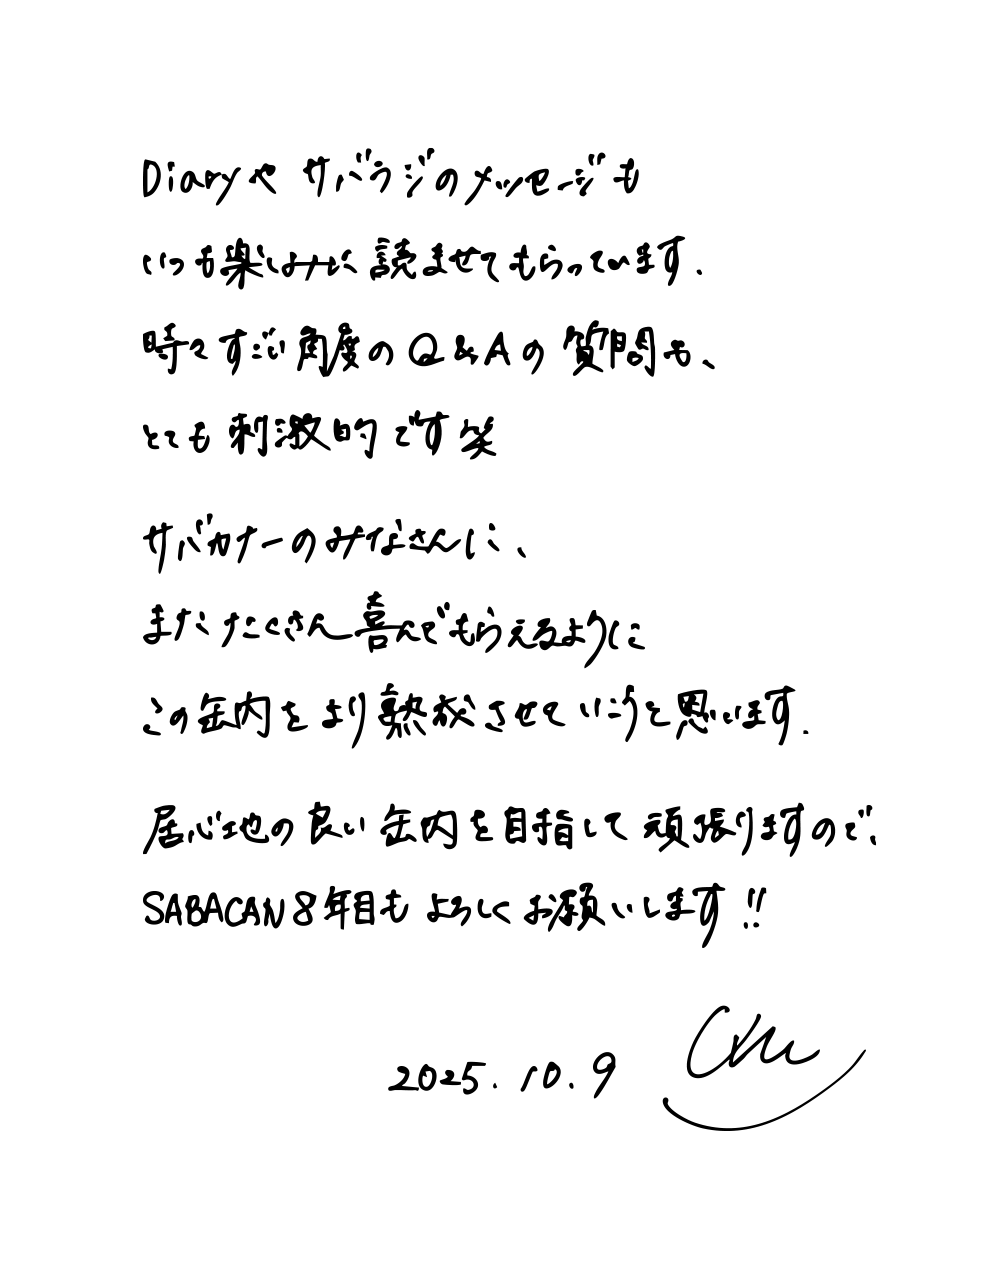 Diaryや サバラジのメッセージも
いつも楽しみに 読ませてもらっています.
時々すごい角度のQ&Aの質問も、
とても刺激的です笑
サバカナーのみなさんに、
またたくさん喜んでもらえるように
この缶内をより熟成させていこうと思います.
居心地の良い缶内を目指して頑張りますので、
SABACAN8年目もよろしくお願いします!!
2025.10.9